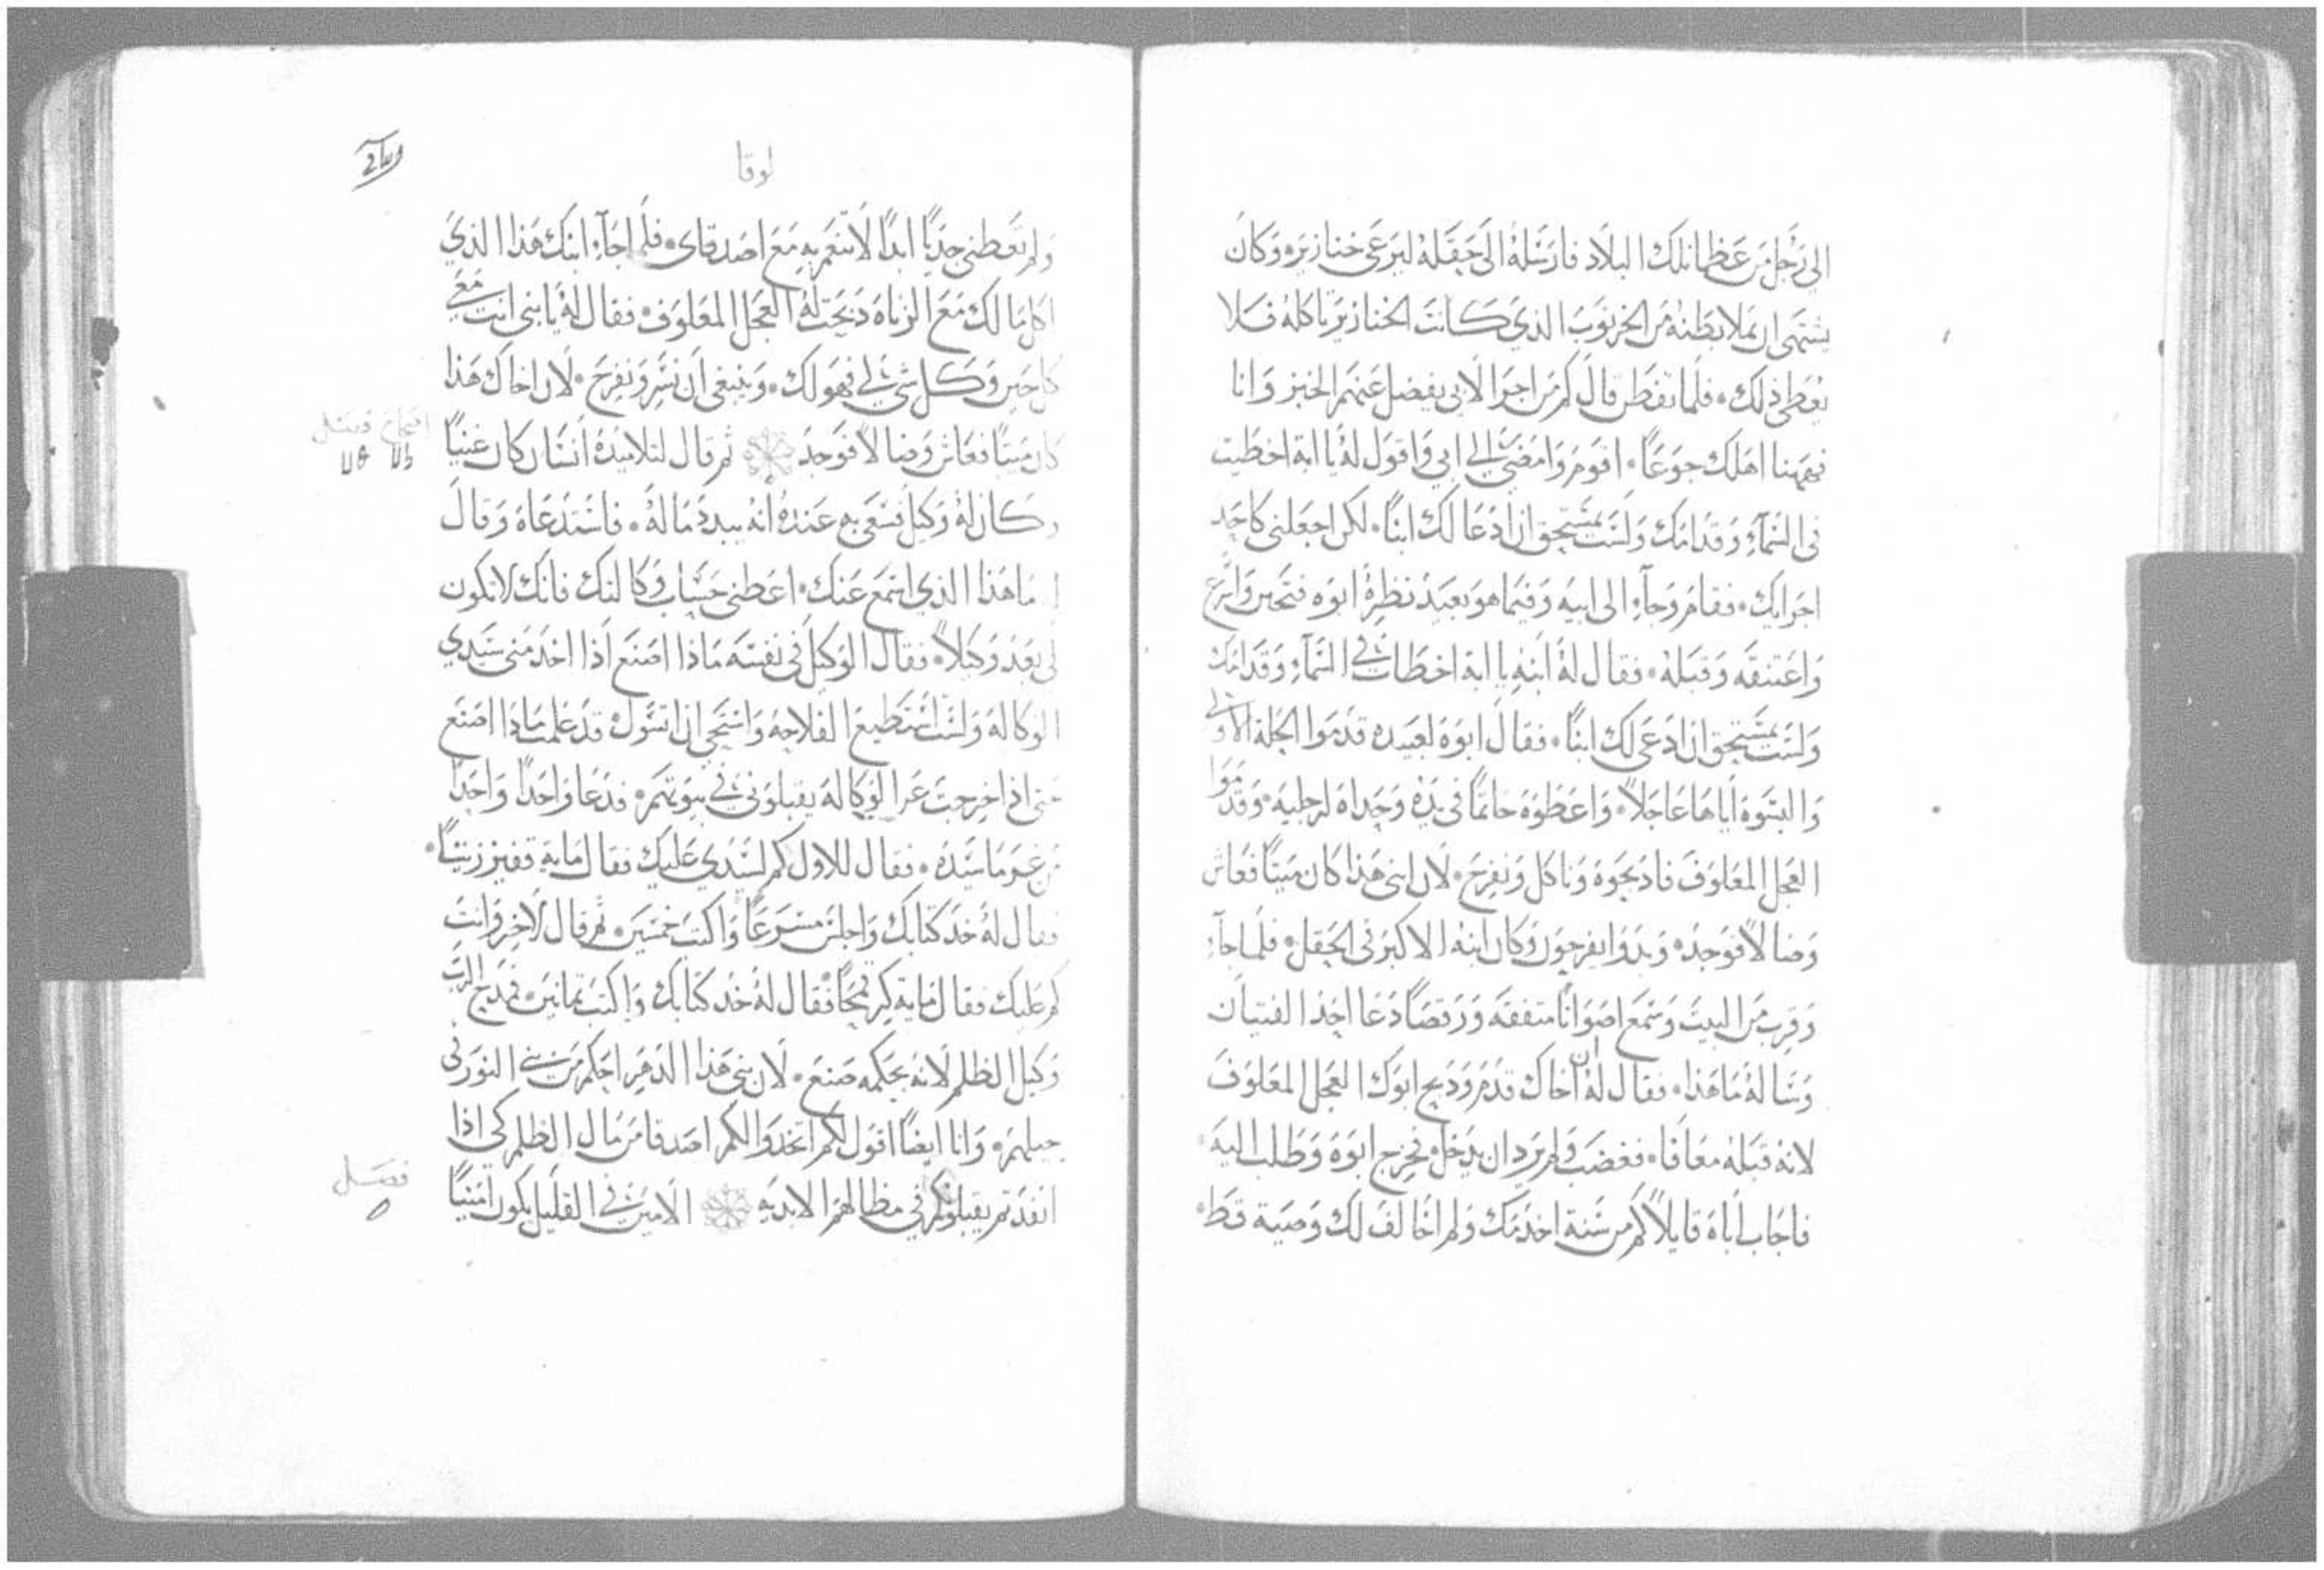 الى رجل من عظما تلك البلاد فارسله الى حقله ليرعى خنازيره وكان
يشتهى ان يملا بطنه من الخرنوب الذي كانت الخنازير تاكله فلا
يعطى ذلك. فلما تفطن قال كم من اجرا لابى يفضل عنهم الخبز وانا
فههنا اهلك جوعًا. اقوم وامضي الي ابي واقول له يا ابة اخطيت
فى السمآء وقدامك ولست بمستحق ان ادعا لك ابنًا. لكن اجعلنى كاحد
اجرايك. فقام وجآء الى ابيه وفيما هو بعيد نظرة ابوه فتحنن واسرع
واعتنقه وقبله. فقال له ابنه يا ابة اخطات في السمآء وقدامك
ولست بمستحق ان ادعى لك ابنًا. فقال ابوه لعبيده قدموا الحلة الاولى
والبسوه اياها عاجلاً. واعطوه خاتمًا فى يده وحداه لرجليه. وقدموا
العجل المعلوف فادبحوه وناكل ونفرح. لان ابنى هذا كان ميتًا فعاش
وضالاً فوجد. وبدوا يفرحون وكان ابنه الاكبر فى الحقل. فلما جآء
وقرب من البيت وسمع اصواتًا متفقه ورقصًا دعا احد الفتيان
وساله ما هذا. فقال له ان اخاك قدم ودبح ابوك العجل المعلوف
لانه قبله معافا. فغضب ولم يرد ان يدخل. فخرج ابوه وطلب اليه.
فاجاب اباه قايلاً كم من سنة اخدمك ولم اخالف لك وصية قط.
لوقا
ولم تعطنى جديًا ابدًا لاتنعم به مع اصدقاى. فلما جآء ابنك هذا الذي
اكل مالك مع الزناه دبحت له العجل المعلوف. فقال له يا بنى انت معي
كل حين وكل شي لي فهو لك. وينبغى ان نسر ونفرح. لان اخاك هذا
كان ميتًا فعاش وضالاً فوجد ثم قال لتلاميده انسان كان غنيًا
وكان له وكيل فسعى به عنده انه يبدد ماله. فاستدعاه وقال
ما هذا الذي اسمع عنك. اعطنى حساب وكالتك فانك لا تكون
لى بعد وكيلاً. فقال الوكيل فى نفسه ماذا اصنع اذا اخد منى سيدي
الوكاله ولست استطيع الفلاحه واستحي ان اتسول. قد علمت ماذا اصنع
حتى اذا خرجت عن الوكاله يقبلونى في بيوتهم. فدعا واحدًا واحدًا
من غرما سيده. فقال للاول كم لسيدي عليك فقال ماية قفيز زيتًا.
فقال له خد كتابك واجلس مسرعًا واكتب خمسين. ثم قال لاخر وانت
كم عليك فقال ماية كر قمحًا فقال له خد كتابك واكتب تمانين. فمدح الرب
وكيل الظلم لانه بحكمه صنع. لان بني هذا الدهر احكم من بني النور فى
جيلهم. وانا ايضًا اقول لكم اتخدوا لكم اصدقا من مال الظلم كى اذا
انفدتم يقبلونكم فى مظالهم الابديه الامين في القليل يكون امينًا
اصحاح فصل
فصل